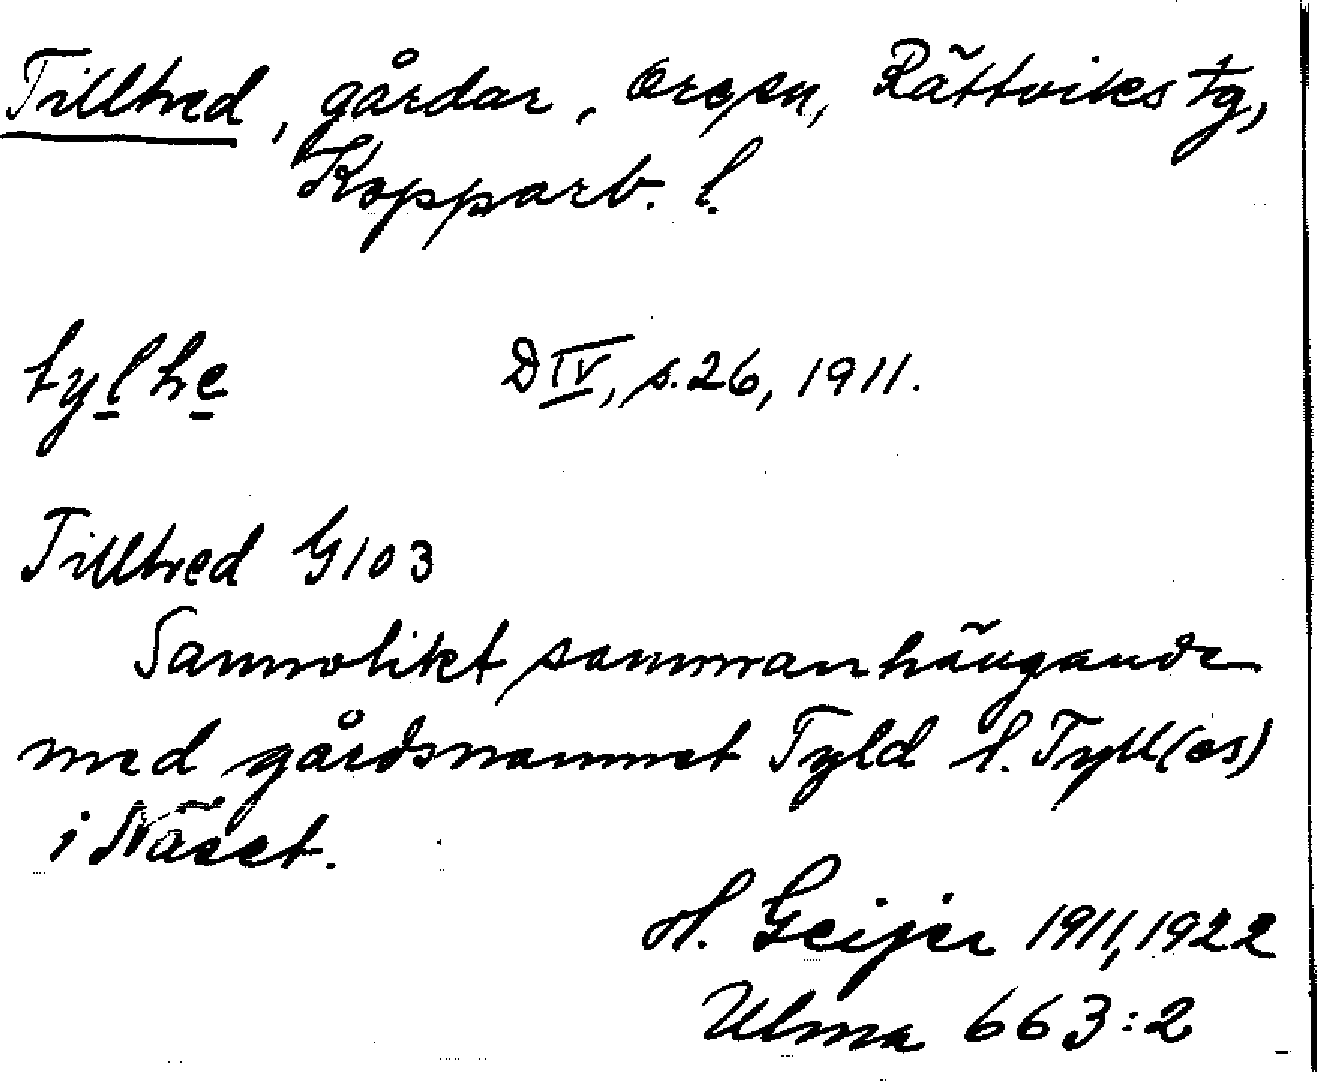 Tilltred, gårdar, Ore sn, Rättviks tg,
Kopparb. l.
tylhe
D IV, s. 26, 1911.
Tilltred G 103
Sannolikt sammanhängande
med gårdsnamnet Tyld l. Tyll(es)
i Näset.
H. Geijer 1911, 1922
Ulma 663:2